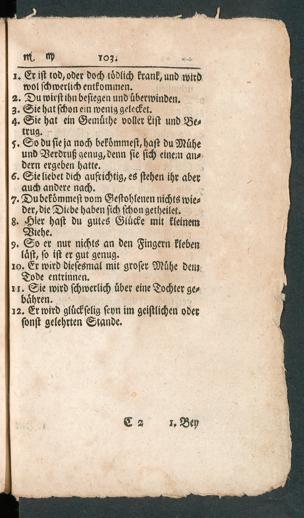 ♏ ♍ 103.
1. Er ist tod, oder doch tödlich krank, und wird
wol schwerlich entkommen.
2. Du wirst ihn besiegen und überwinden.
3. Sie hat schon ein wenig gelecket.
4. Sie hat ein Gemüthe voller List und Be-
trug.
5. So du sie ja noch bekömmest, hast du Mühe
und Verdruß genug, denn sie sich einem an-
dern ergeben hatte.
6. Sie liebet dich aufrichtig, es stehen ihr aber
auch andere nach.
7. Du bekömmest vom Gestohlenen nichts wie-
der, die Diebe haben sich schon getheilet.
8. Hier hast du gutes Glücke mit kleinem
Viehe.
9. So er nur nichts an den Fingern kleben
läst, so ist er gut genug.
10. Er wird diesesmal mit groser Mühe dem
Tode entrinnen.
11. Sie wird schwerlich über eine Tochter ge-
bähren.
12. Er wird glückselig seyn im geistlichen oder
sonst gelehrten Stande.
C 2 1. Bey